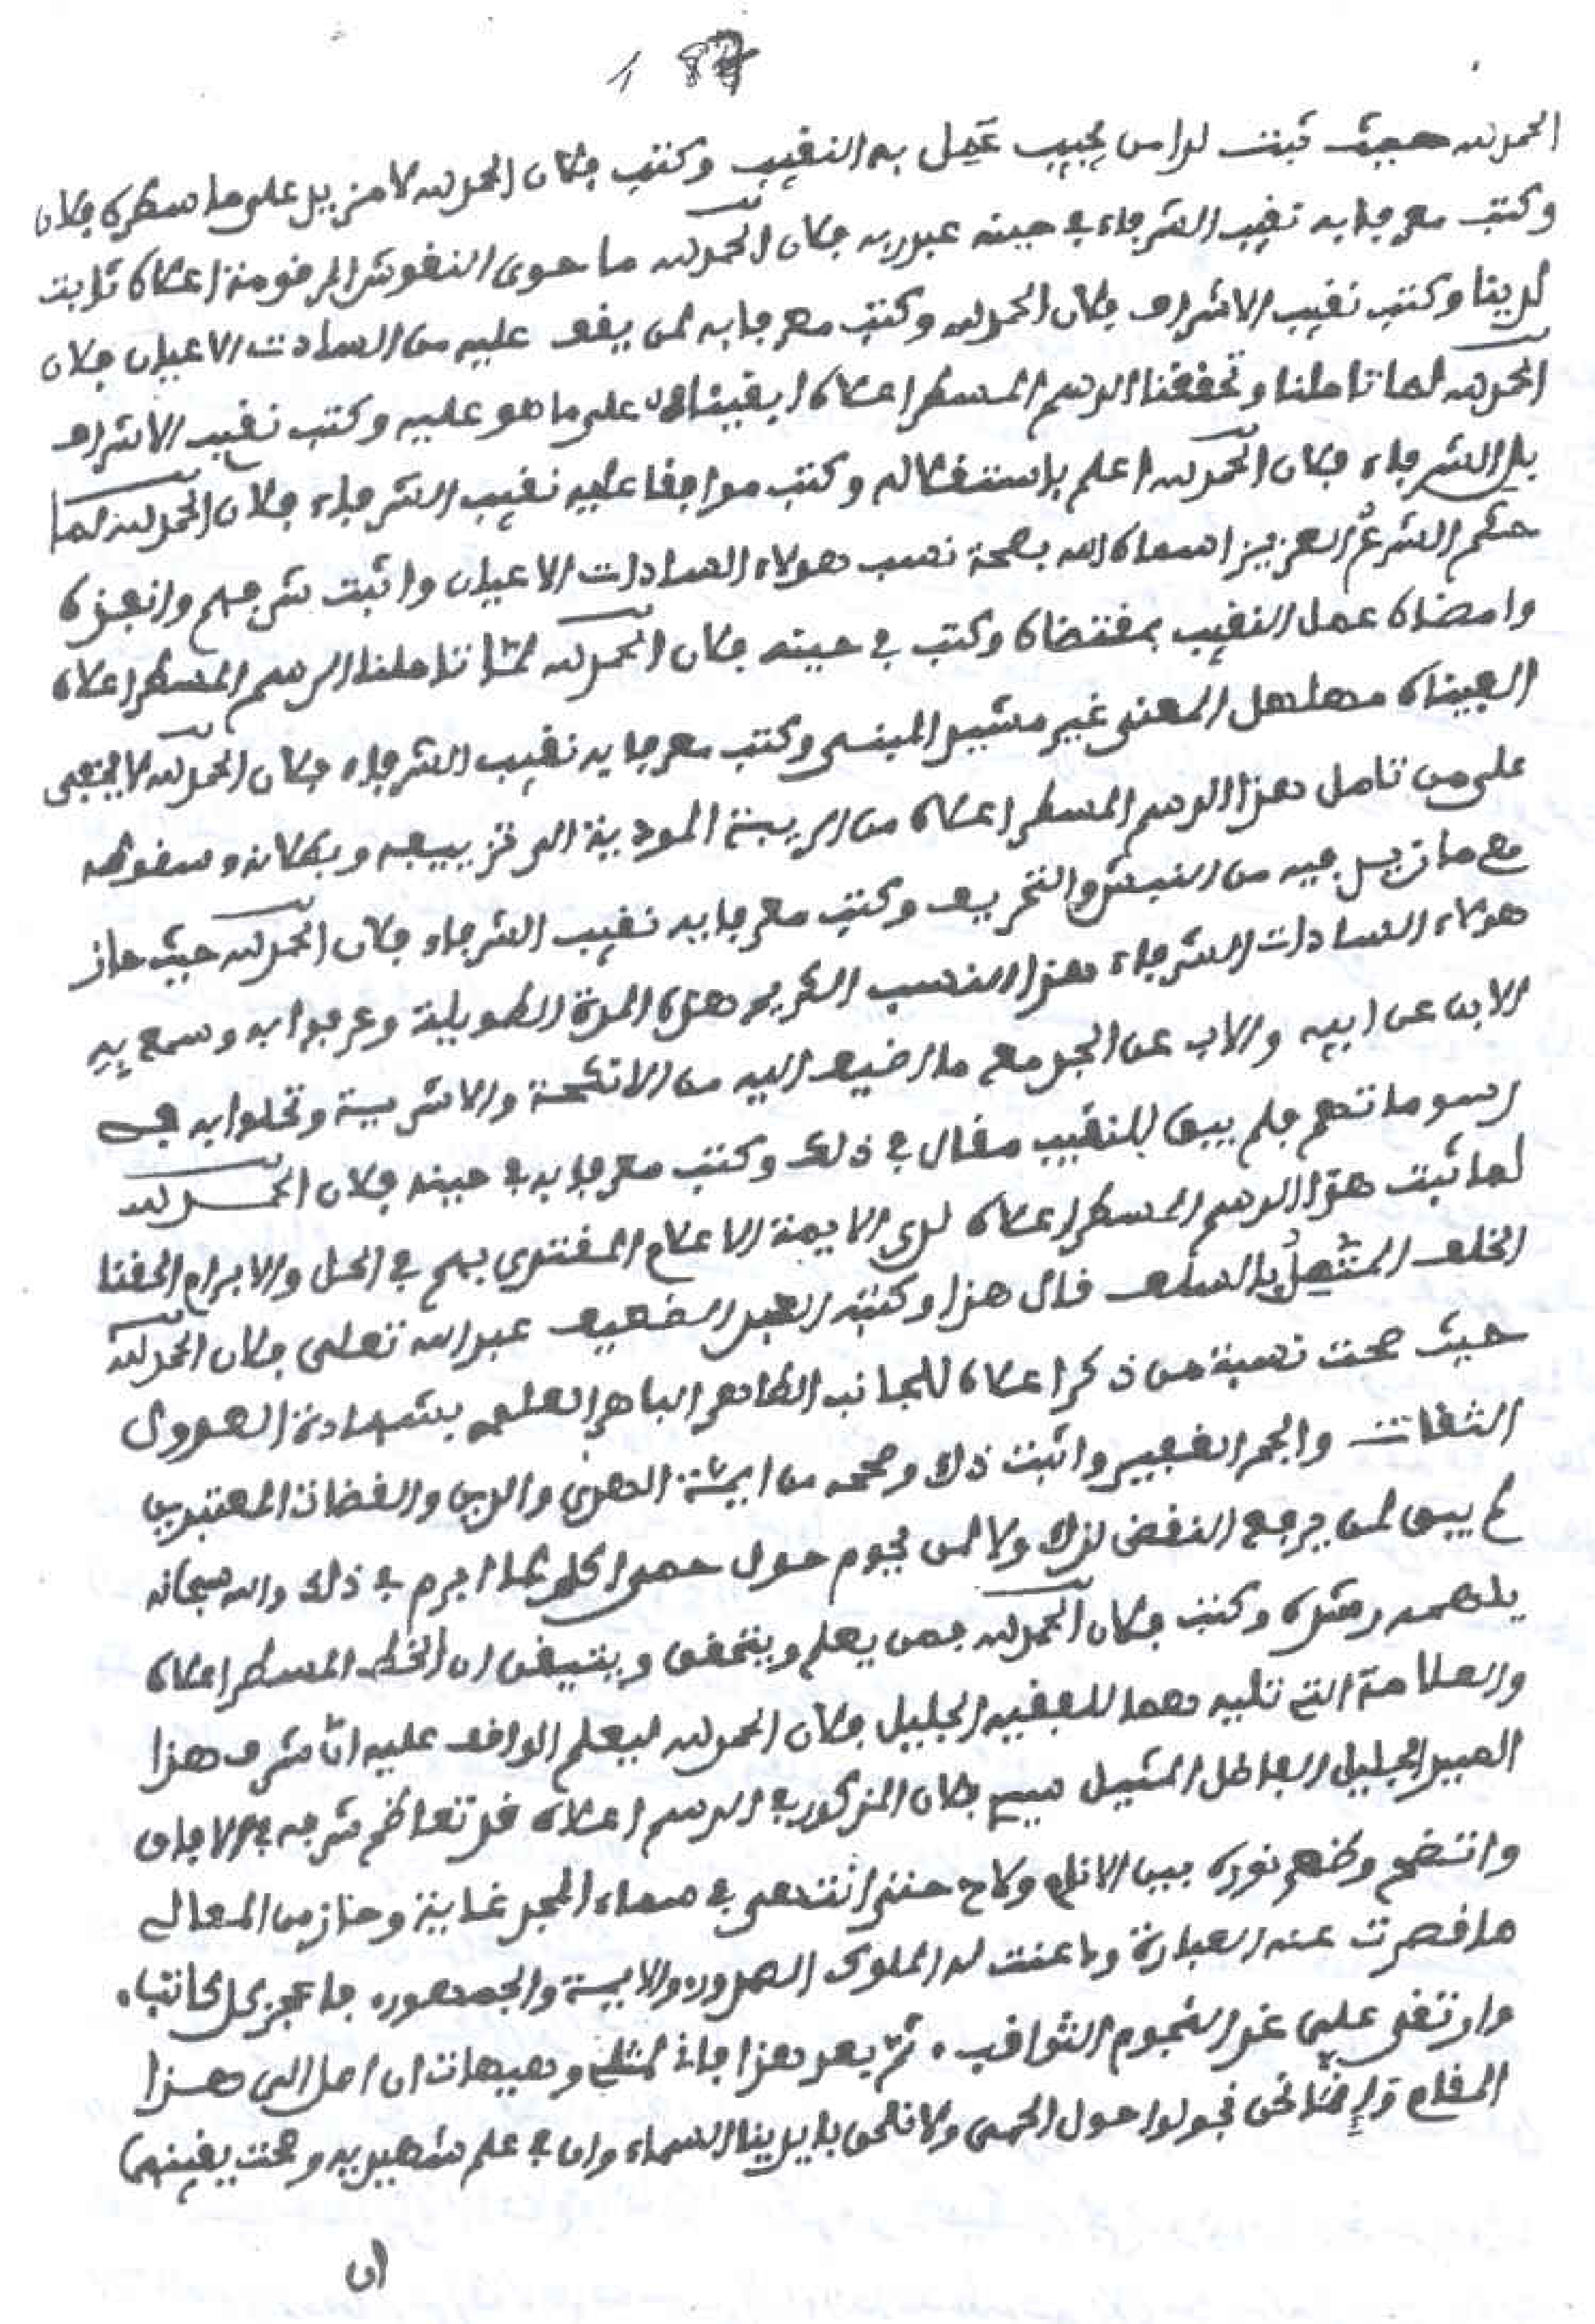 187
الحمد لله حيث ثبت لدا من يجيب عمل به النقيب وكتب فكان الحمد لله لا مزيد على ما سطره فكان
وكتب معرفا به نقيب الشرفاء في حينه عبد ربه فكان الحمد لله ما حوى النقوش المرقومة اعلاه ثابت
لدينا وكتب نقيب الاشراف فكان الحمد لله وكتب معرفا به لمن يقف عليه من السادت الاعيان فكان
الحمد لله لما تاملنا وتحققنا الرسم المسطر اعلاه ابقيناه على ما هو عليه وكتب نقيب الاشراف
بل الشرفاء فكان الحمد لله اعلم باستقلاله وكتب موافقا عليه نقيب الشرفاء فكان الحمد لله لما
حكم الشرع العزيز اسماه الله بصحة نسب هولاء السادات الاعيان واثبت شرفهم وانفذه
وامضاه عمل النقيب بمقتضاه وكتب في حينه فكان الحمد لله لما تاملنا الرسم المسطر اعلاه
الفيناه مهلهل المعنى غير مشيد المبنى وكتب معرفا به نقيب الشرفاء فكان الحمد لله لا يخفى
على من تامل هذا الرسم المسطر اعلاه من الريبة المودية الى تزييفه وبطلانه وسقوطه
مع ما زيد فيه من النبش والتحريف وكتب معرفا به نقيب الشرفاء فكان الحمد لله حيث حاز
هولاء السادات الشرفاء هذا النسب الكريم هذه المدة الطويلة وعرفوا به وسمع به
الابن عن ابيه والاب عن الجد مع ما اضيف اليه من الانكحة والاشرية وتحلوا به في
رسوماتهم فلم يبق للنقيب مقال في ذلك وكتب معرفا به في حينه فكان الحمد لله
لما ثبت هذا الرسم المسطر اعلاه لدى الايمة الاعلام المقتدى بهم في الحل والابرام الحقنا
الخلف المتصل بالسلف قال هذا وكتبه العبد الضعيف عبد الله تعلى فكان الحمد لله
حيث صحت نسبة من ذكر اعلاه للجانب الطاهر الباهر العلي بشهادة العدول
الثقات والجم الغفير واثبت ذلك وصححه من ايمة الهدى والدين والقضاة المعتبرين
لم يبق لمن يرفع النقض لذلك ولا لمن يحوم حول حمى كلامنا ابرم في ذلك والله سبحانه
يلهمه رشده وكتب فكان الحمد لله فمن يعلم ويتحقق ويتيقن ان الخط المسطر اعلاه
والعلامة التي تليه هما للفقيه الجليل فكان الحمد لله ليعلم الواقف عليه ان شرف هذا
السيد الجليل الفاضل المثيل سيد فلان المذكور في الرسم اعلاه قد تعاظم شرفه في الافاق
واتضح وظهر نوره بين الانام ولاح حتى انتهى في سماء المجد غاية وحاز من المعالي
ما قصرت عنه العبارة وما عنت له الملوك الصدور والايمة والجمهور، فاعجز كل كاتب،
وارتقى على غر النجوم الثواقب، ثم بعد هذا فانا لمثلي وهيهات ان اصل الى هذا
المقام وايضا نحن نجول حول الحمى ولا نلحق بايدينا السماء وان في علم شهيديه وصحت يقينهما
ان